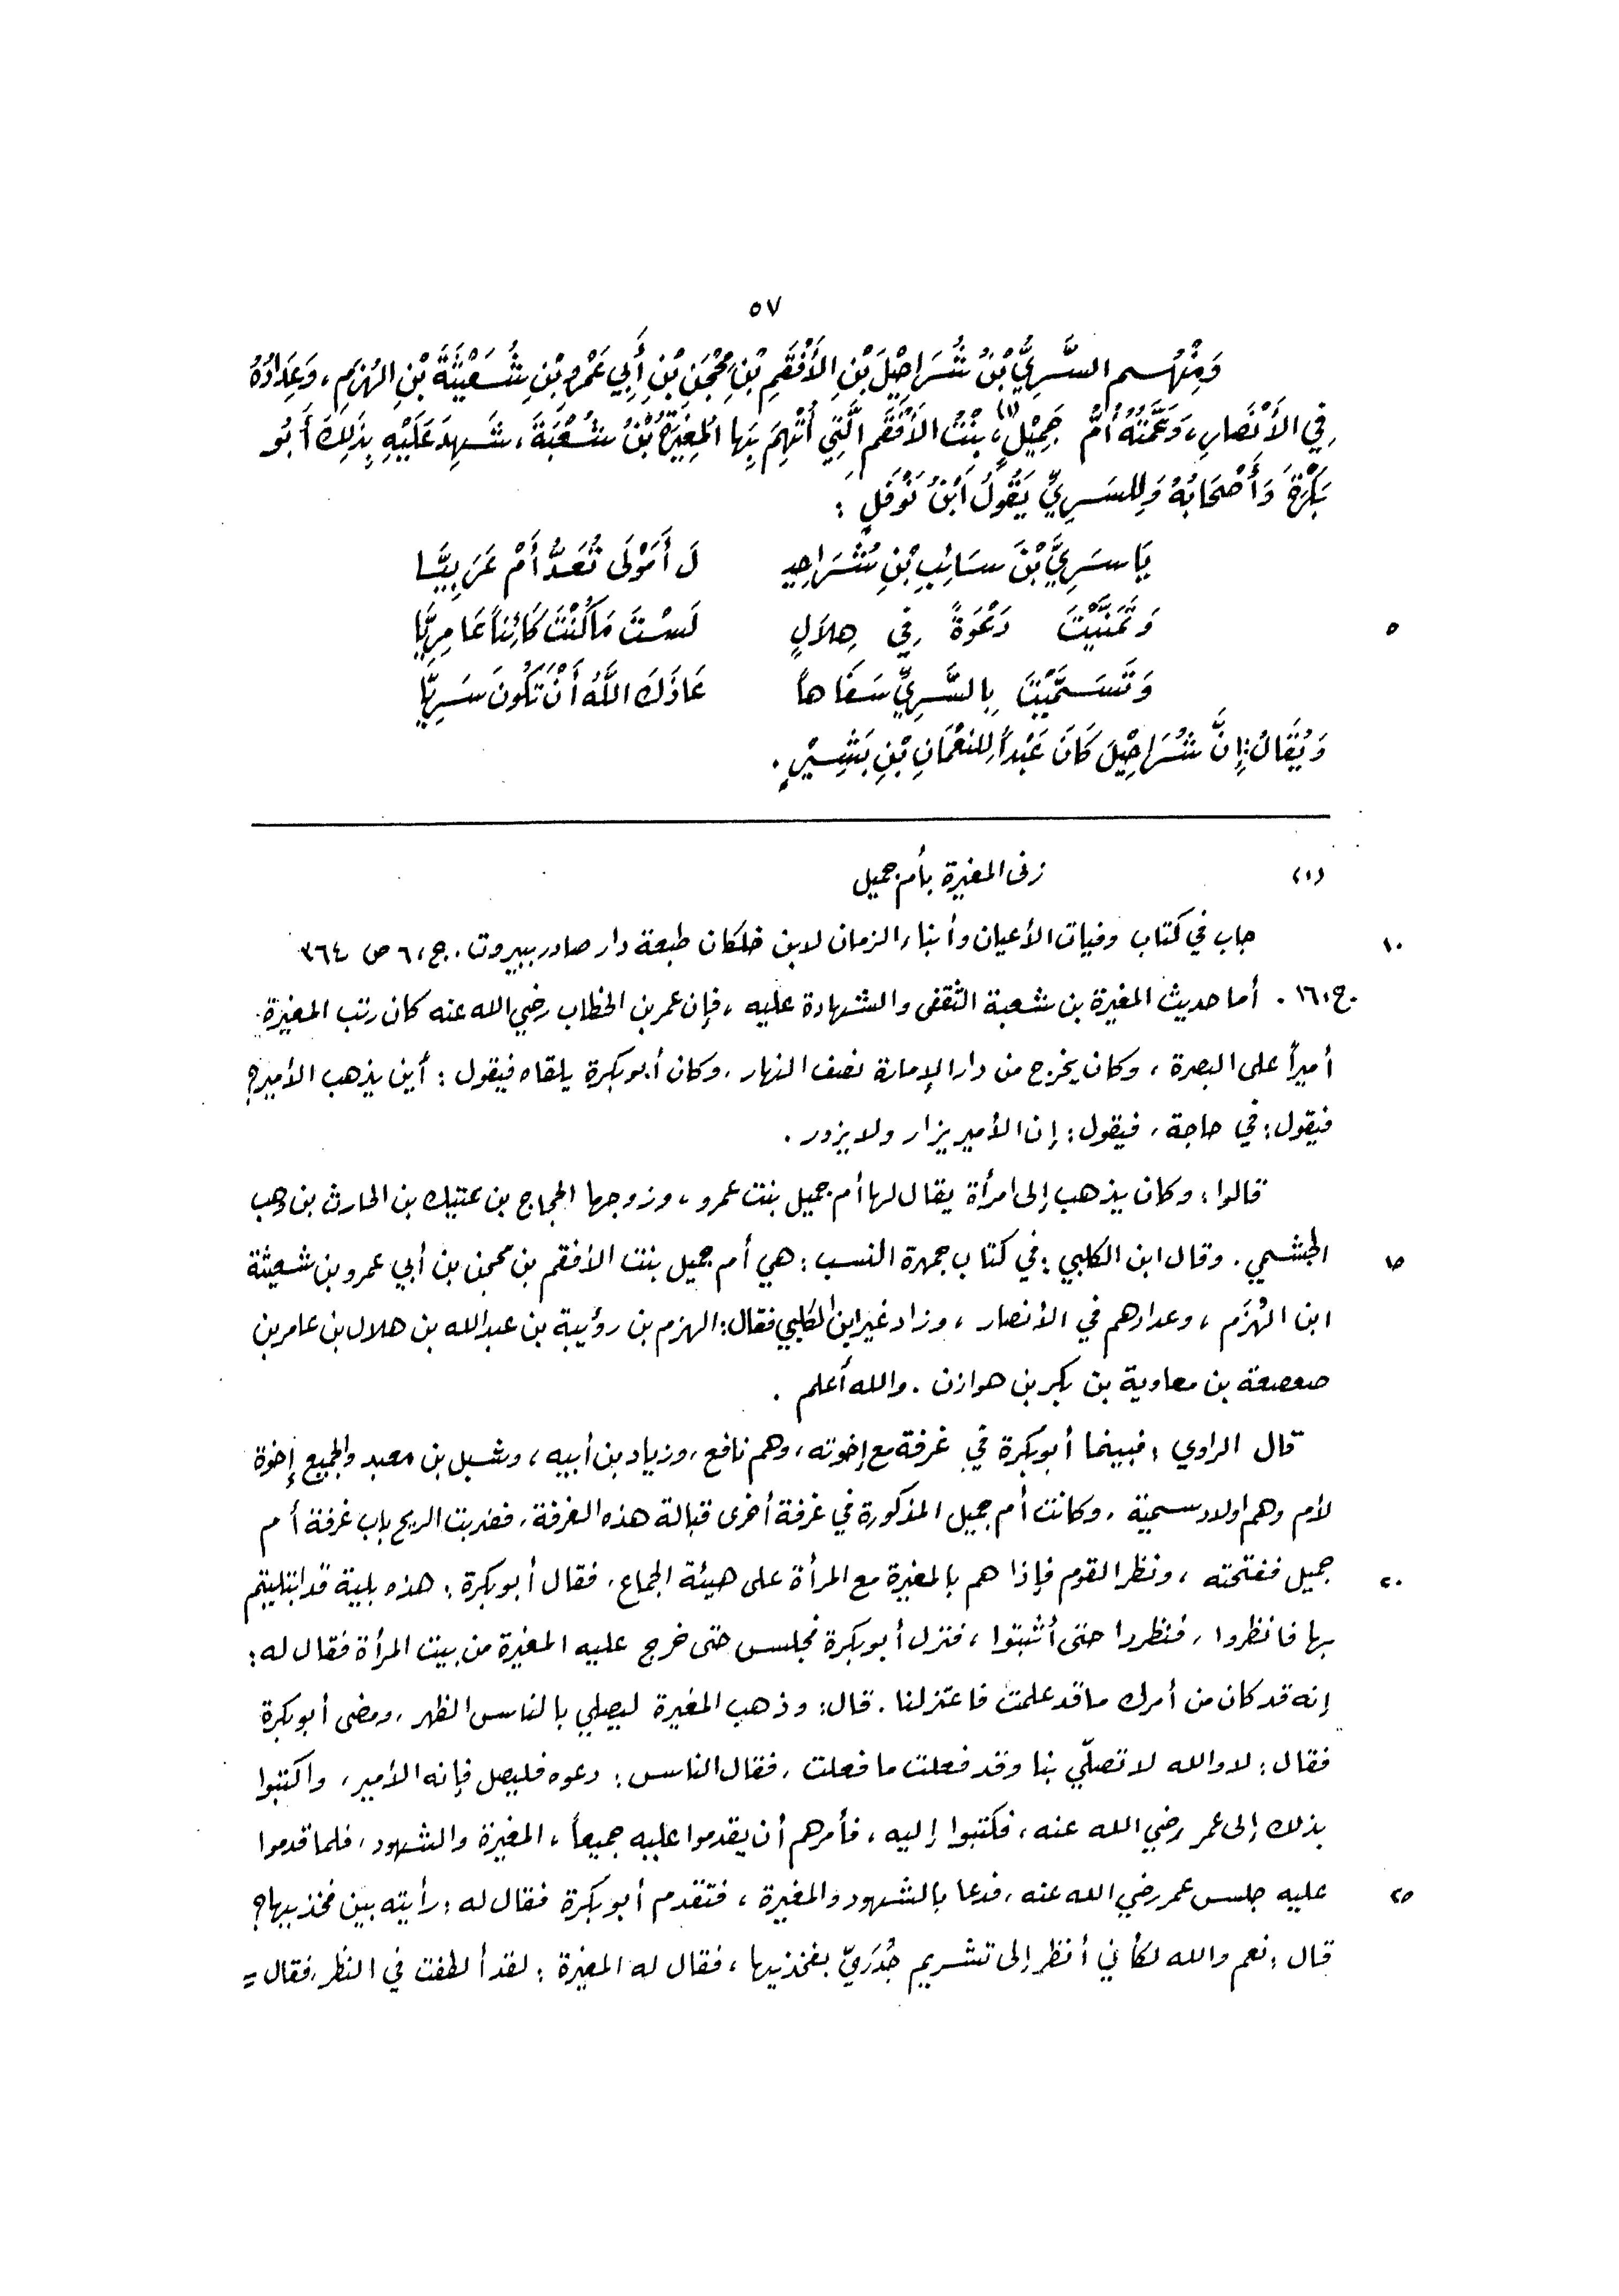 ٥٧
وَمِنْهُم السَّرِيُّ بْنُ شُرَاحِيْلَ بْنِ الأَفْقَمِ بْنِ مِحْجَنِ بْنِ أَبِي عَمْرِو بْنِ شُعَيْثَةَ بْنِ الهُزَمِ، وَعِدَادُهُ
فِي الأَنْصَارِ، وَعَمَّتُهُ أُمُّ جَمِيْلٍ(١)، بِنْتُ الأَفْقَمِ الَّتِي اتُّهِمَ بِهَا المُغِيْرَةُ بْنُ شُعْبَةَ، شَهِدَ عَلَيْهِ بِذَلِكَ أَبُو
بَكْرَةَ وَأَصْحَابُهُ وَلِلسَرِيِّ يَقُولُ ابْنُ نَوْفَلٍ :
يَا سَرِيَّ بْنَ سَائِبِ بْنِ شُرَاحِيـ لَ أَمَوْلَى تُعَدُّ أَمْ عَرَبِيَّـا
وَتَمَنَّيْتَ دَعْوَةً فِي هِلَالٍ لَسْتَ مَا كُنْتَ كَائِناً عَامِرِيَّا
٥
وَتَسَمَّيْتَ بِالسَّرِيِّ سَفَاهاً عَاذَكَ اللَّهُ أَنْ تَكُونَ سَرِيَّا
وَيُقَالُ: إِنَّ شُرَاحِيْلَ كَانَ عَبْداً لِلنعْمَانِ بْنِ بَشِيْرٍ .
(١) زنى المغيرة بأم جميل
جاء في كتاب وفيات الأعيان وأنباء الزمان لابن خلكان طبعة دار صادر ببيروت . ج: ٦ ص ٣٦٤
١٠
ج: ١٦ . أما حديث المغيرة بن شعبة الثقفى والشهادة عليه ، فإن عمر بن الخطاب رضي الله عنه كان رتب المغيرة
أميراً على البصرة ، وكان يخرج من دار الإمارة نصف النهار ، وكان أبو بكرة يلقاه فيقول : أين يذهب الأمير؟
فيقول: في حاجة ، فيقول: إن الأمير يزار ولا يزور .
قالوا: وكان يذهب إلى امرأة يقال لها أم جميل بنت عمرو ، وزوجها الحجاج بن عتيك بن الحارث بن وهب
الجشمي . وقال ابن الكلبي: في كتاب جمهرة النسب: هي أم جميل بنت الأفقم بن محجن بن أبي عمرو بن شعيثة
١٥
ابن الهُزَم ، وعدادهم في الأنصار ، وزاد غير ابن الكلبي فقال: الهزم بن رؤيبة بن عبد الله بن هلال بن عامر بن
صعصعة بن معاوية بن بكر بن هوازن . والله أعلم .
قال الراوي: فبينما أبو بكرة في غرفة مع إخوته ، وهم نافع ، وزياد بن أبيه ، وشبل بن معبد والجميع إخوة
لأم وهم اولاد سمية ، وكانت أم جميل المذكورة في غرفة أخرى قبالة هذه الغرفة ، فضربت الريح باب غرفة أم
جميل ففتحته ، ونظر القوم فإذا هم بالمغيرة مع المرأة على هيئة الجماع ، فقال أبو بكرة: هذه بلية قد ابتليتم
٢٠
بها فانظروا ، فنظروا حتى أثبتوا ، فنزل أبو بكرة فجلس حتى خرج عليه المغيرة من بيت المرأة فقال له:
إنه قد كان من أمرك ما قد علمت فاعتزلنا . قال: وذهب المغيرة ليصلي بالناس الظهر ، ومضى أبو بكرة
فقال: لا والله لا تصلّي بنا وقد فعلت ما فعلت ، فقال الناس: دعوه فليصل فإنه الأمير ، واكتبوا
بذلك إلى عمر رضي الله عنه ، فكتبوا إليه ، فأمرهم أن يقدموا عليه جميعاً ، المغيرة والشهود ، فلما قدموا
عليه جلس عمر رضي الله عنه ، فدعا بالشهود والمغيرة ، فتقدم أبو بكرة فقال له: رأيته بين فخذيها؟
٢٥
قال: نعم والله لكأني أنظر إلى تشريم جُدَرِيّ بفخذيها ، فقال له المغيرة: لقد ألطفت في النظر ، فقال =